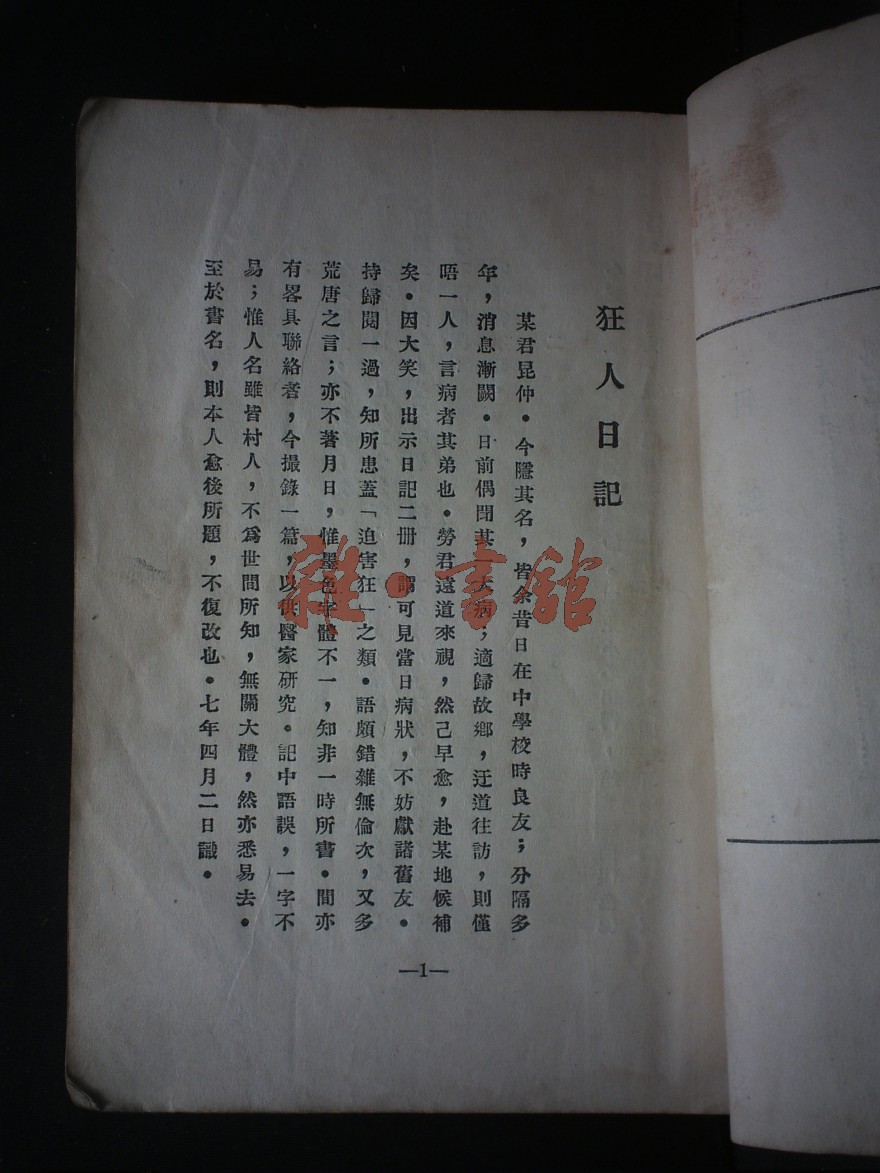 狂人日記
某君昆仲・今隱其名，皆余昔日在中學校時良友；分隔多
年，消息漸闕・日前偶聞其一大病；適歸故鄉，迂道往訪，則僅
晤一人，言病者其弟也・勞君遠道來視，然已早愈，赴某地候補
矣・因大笑，出示日記二册，謂可見當日病狀，不妨獻諸舊友・
持歸閱一過，知所患蓋「迫害狂」之類・語頗錯雜無倫次，又多
荒唐之言；亦不著月日，惟墨色字體不一，知非一時所書・間亦
有畧具聯絡者，今撮錄一篇，以供醫家研究。記中語誤，一字不
易；惟人名雖皆村人，不爲世間所知，無關大體，然亦悉易去・
至於書名，則本人愈後所題，不復改也・七年四月二日識・
—1—
雜・書館